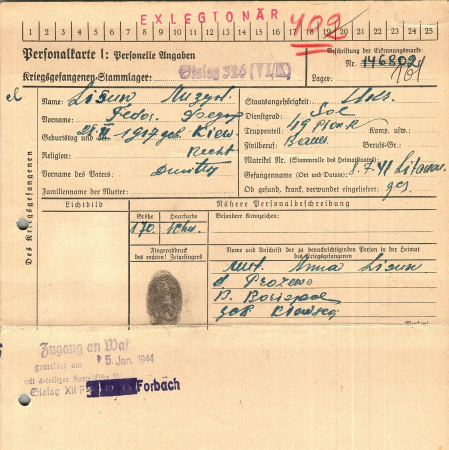 EXLEGIONÄR
409
1 2 3 4 5 6 7 8 9 10 11 12 13 14 15 16 17 18 19 20 21 22 23 24 25
Personalkarte I: Personelle Angaben
Kriegsgefangenen-Stammlager: Stalag 326 (VI/K)
Beschriftung der Erkennungsmarke
Nr. 146802
Lager:
Des Kriegsgefangenen
Name: Lisun
Vorname: Fedor
Geburtstag und -ort: 1919 Kiew
Religion:
Vorname des Vaters: Dmitry
Familienname der Mutter:
Staatsangehörigkeit:
Dienstgrad: Sol
Truppenteil: Komp. usw.:
Zivilberuf: Bauer Berufs-Gr.:
Matrikel Nr. (Stammrolle des Heimatstaates):
Gefangennahme (Ort und Datum): 8.7.41
Ob gesund, krank, verwundet eingeliefert: ges.
Lichtbild
Nähere Personalbeschreibung
Größe Haarfarbe Besondere Kennzeichen:
170 schw.
Fingerabdruck
des rechten! Zeigefingers
Name und Anschrift der zu benachrichtigenden Person in der Heimat
des Kriegsgefangenen
Mut. Anna Lisun
d Prozewo
R. Borispol
Zugang an
gemeldet am 5. Jan. 1944
Stalag XII F Forbach